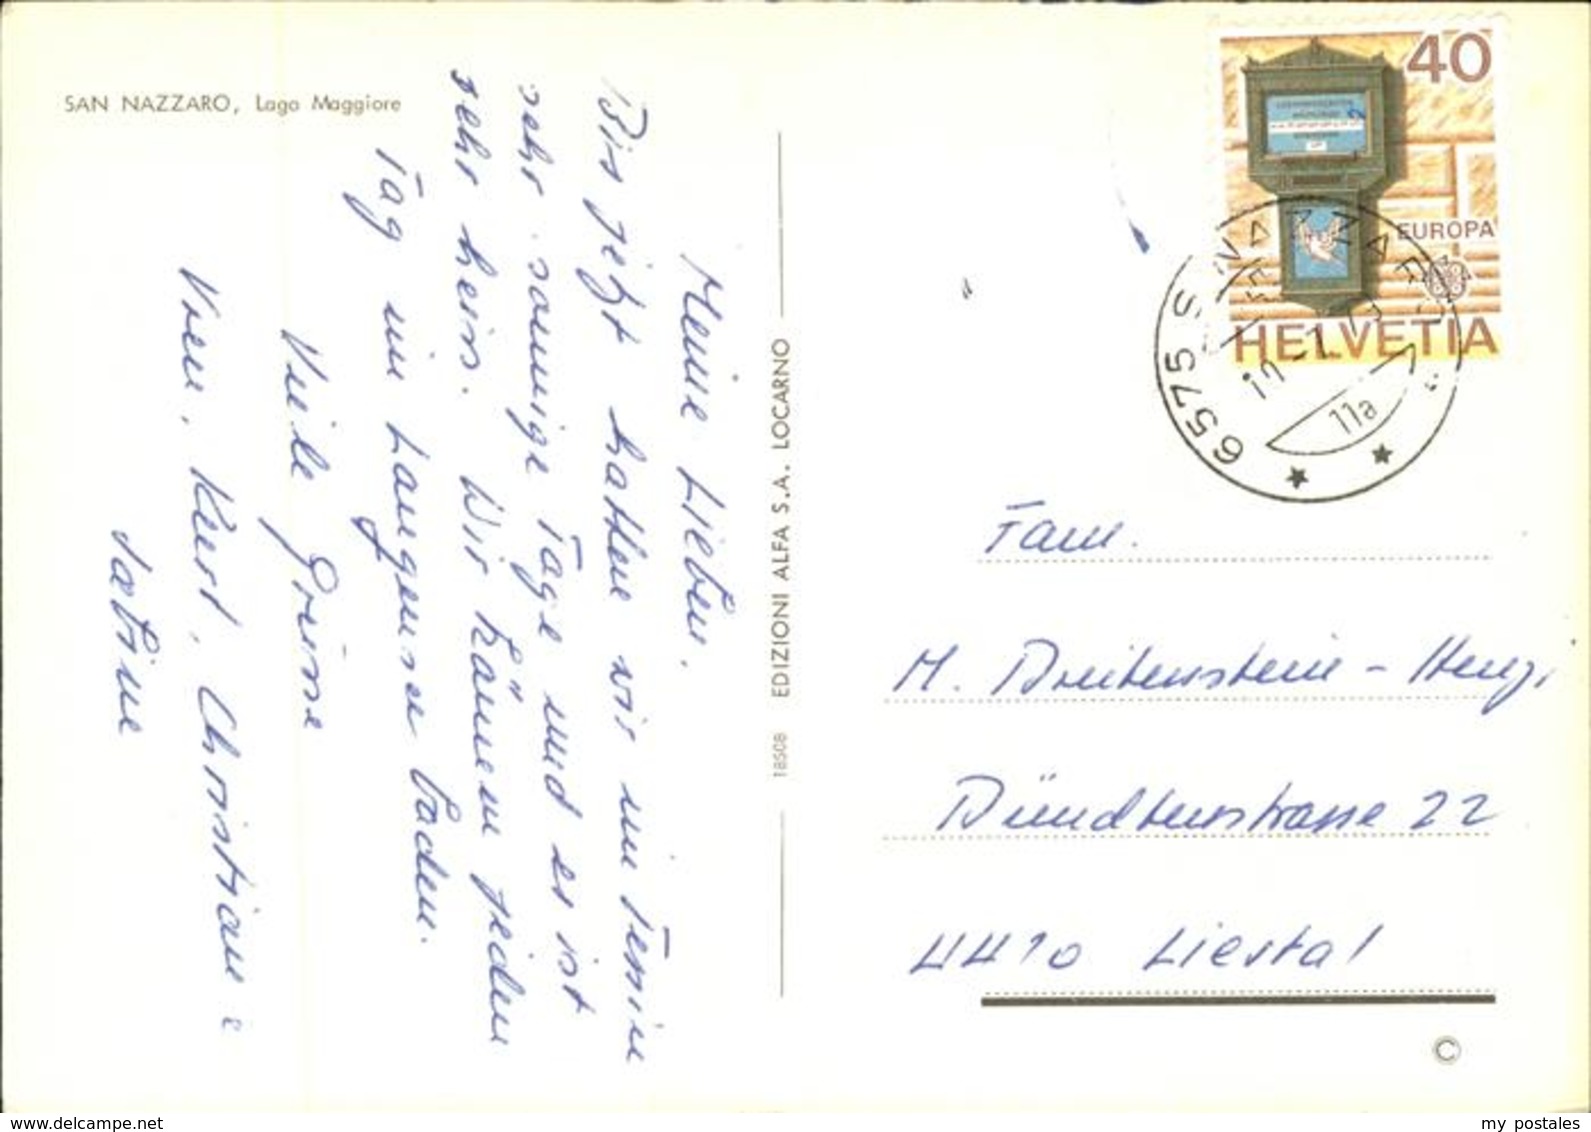 SAN NAZZARO, Lago Maggiore
Meine Lieben.
Bis jetzt hatten wir im Tessin
sehr sonnige Tage und es ist
sehr heiss. Wir können jeden
Tag im Langensee baden.
Viele Grüsse
Vren, Kurt, Christian &
Sabine
18508 EDIZIONI ALFA S.A. LOCARNO
40
EUROPA
HELVETIA
6575 S
11a
Fam.
M. Breitenstein-Henzi
Bündtenstrasse 22
4410 Liestal
©
my postales